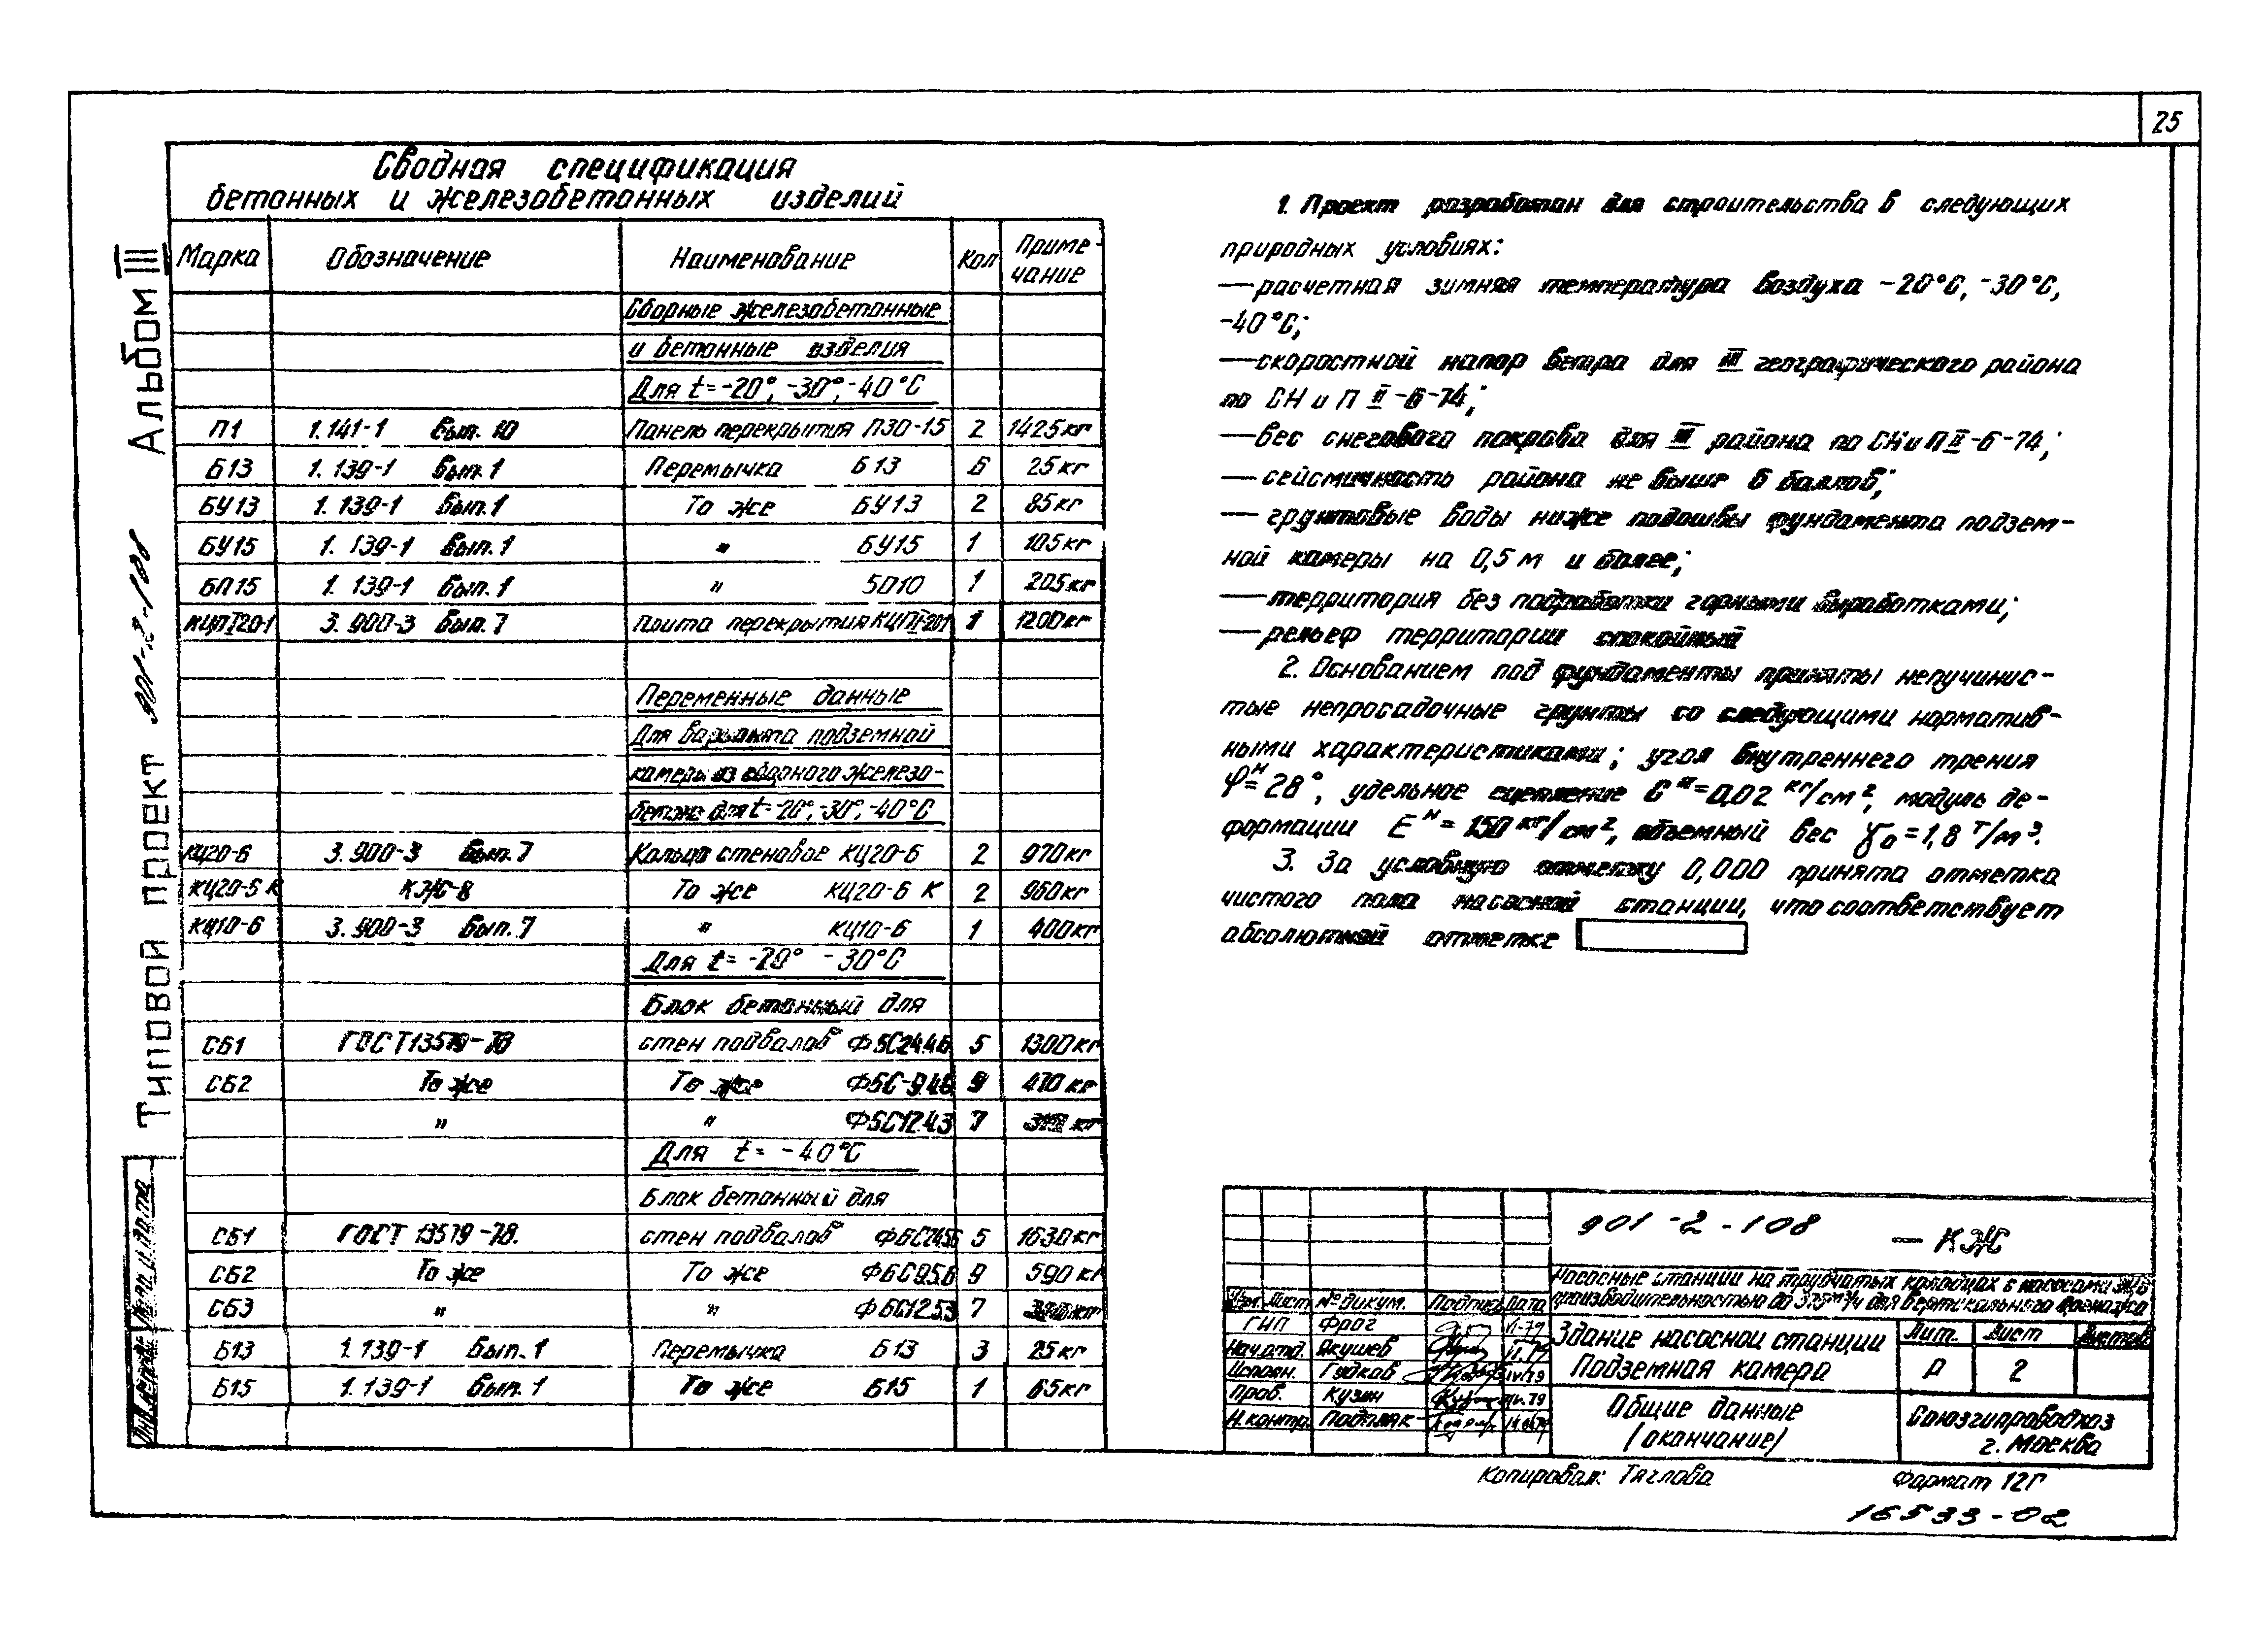 25
Альбом III
Типовой проект 901-2-108
Сводная спецификация
бетонных и железобетонных изделий
Марка Обозначение Наименование Кол Приме-
чание
Сборные железобетонные
и бетонные изделия
Для t=-20°, -30°, -40°С
П1 1.141-1 Вып. 10 Панель перекрытия П30-15 2 1425кг
Б13 1.139-1 Вып.1 Перемычка Б13 6 25кг
БУ13 1.139-1 Вып.1 То же БУ13 2 85кг
БУ15 1.139-1 Вып.1 " БУ15 1 105кг
БП15 1.139-1 Вып.1 " 5010 1 205кг
3.900-3 Вып.7 Плита перекрытия 1 1200кг
Переменные данные
Для варианта подземной
камеры из сборного железо-
бетона для t=-20°, -30°, -40°С
КЦ20-6 3.900-3 Вып.7 Кольцо стеновое КЦ20-6 2 970кг
КЦ20-6 К КЖ-8 То же КЦ20-6 К 2 960кг
КЦ10-6 3.900-3 Вып.7 " КЦ10-6 1 400кг
Для t=-20° -30°С
Блок бетонный для
СБ1 ГОСТ13579-78 стен подвалов ФБС24.4.6 5 1300кг
СБ2 То же То же ФБС-9.4.6 9 470кг
" " ФБС12.4.3 7
Для t= -40°С
Блок бетонный для
СБ1 ГОСТ 13579-78. стен подвалов ФБС24.5.6 5 1630кг
СБ2 То же То же ФБС9.5.6 9 590кг
СБ3 " " ФБС12.5.3 7
Б13 1.139-1 Вып.1 Перемычка Б13 3 25кг
Б15 1.139-1 Вып.1 То же Б15 1 65кг
1. Проект разработан для строительства в следующих
природных условиях:
— расчетная зимняя температура воздуха -20°С, -30°С,
-40°С;
— скоростной напор ветра для III географического района
по СНиП II-6-74;
— вес снегового покрова для III района по СНиП II-6-74;
— сейсмичность района не выше 6 баллов;
— грунтовые воды ниже подошвы фундамента подзем-
ной камеры на 0,5м и более;
— территория без подработки горными выработками;
— рельеф территории спокойный
2. Основанием под фундаменты приняты непучинис-
тые непросадочные грунты со следующими норматив-
ными характеристиками; угол внутреннего трения
φн=28°, удельное сцепление Сн=0,02 кг/см², модуль де-
формации Eн=150 кг/см², объемный вес γо=1,8 т/м³.
3. За условную отметку 0,000 принята отметка
чистого пола насосной станции, что соответствует
абсолютной отметке
901-2-108 — КЖ
Насосные станции на трубчатых колодцах с насосами
производительностью до м³/ч для вертикального дренажа
Изм. Лист № докум. Подпись Дата
ГИП Фрог VI-79
Нач.отд. Якушев VI.79
Исполн. Гудков IV.79
Пров. Кузин VI.79
Н.контр. Подпляк
Здание насосной станции
Подземная камера
Лит. Лист Листов
Р 2
Общие данные
(окончание)
Союзгипроводхоз
г. Москва
Копировал: Тяглова Формат 12Г
16533-02